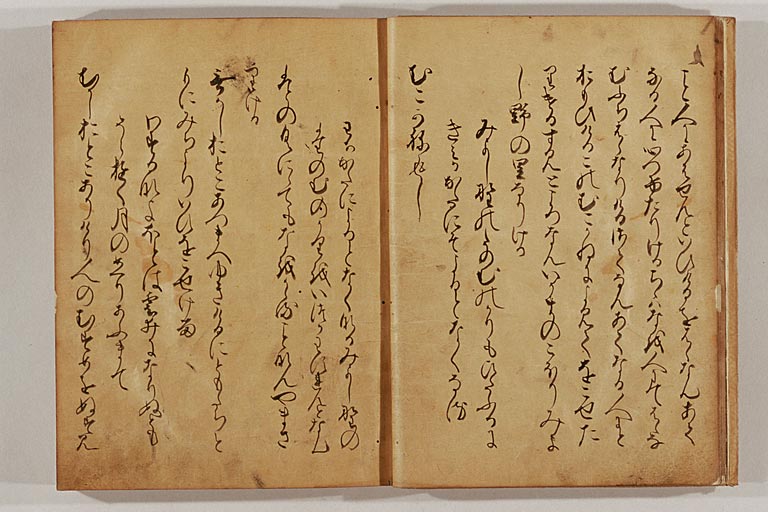 こと人にあはせんといひけるをはゝなんあて
なる人に心つけたりけるちゝはなを人にてはゝな
むふちはらなりけるさてなんあてなる人にと
おもひけるこのむこかねによみてをこせた
りけるすむところなんいるまのこほりみよ
し野の里なりける
みよし野のたのむのかりもひたふるに
きみかかたにそよるとなくなる
むこかね返し
わかかたによるとなくなるみよし野の
たのむのかりをいつかわすれんとなん
人のくににてもなをかゝることなんやまさ
りける
むかしおとこあつまへゆきけるにともたちと
もにみちよりいひをこせける
わするなよほとは雲ゐになりぬとも
そら行月のめくりあふまて
むかしおとこありけり人のむすめをぬすみ